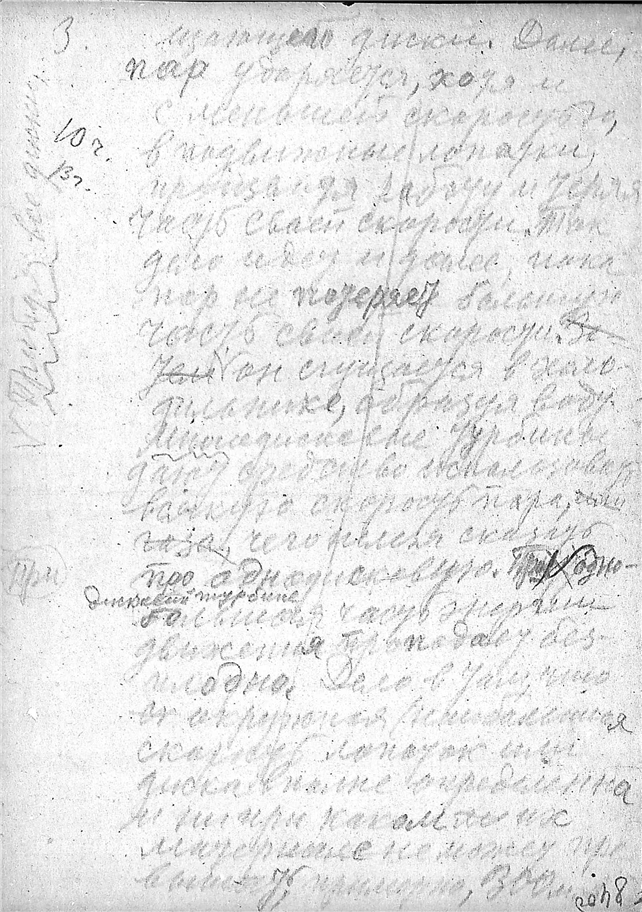 3.
щающего диски. Далее,
пар ударяется, хотя и
с меньшей скоростью,
10 ч.
в подвижные лопатки,
13 г.
производя работу и теряя
часть своей скорости. Так
дело идет и далее, пока
пар не потеряет большую
часть своей скорости.
он сгущается в холо-
дильнике, образуя воду.
Многодисковые турбины
дают средство использовать
всякую скорость пара, или
газа, чего нельзя сказать
При
про однодисковую. При одно-
дисковой турбине
большая часть энергии
движения пропадает без-
плодно. Дело в том, что
окружная (наибольшая
скорость лопаток или
диска вполне определенна
и ни при каком их
материале не может пре
высить, примерно, 300